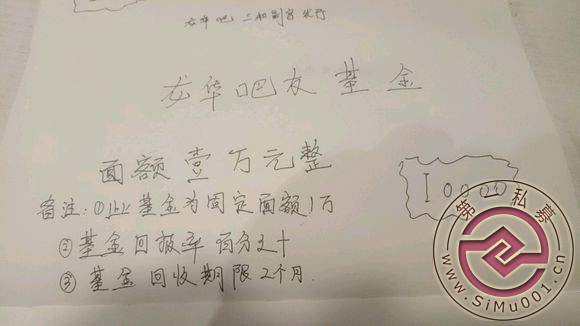 龙华吧 三和制宫发行
龙华吧友基金
面额壹万元整
备注:①此基金为固定面额1万
②基金回报率百分之十
③基金回收期限2个月.
第一私募
www.SiMu001.cn